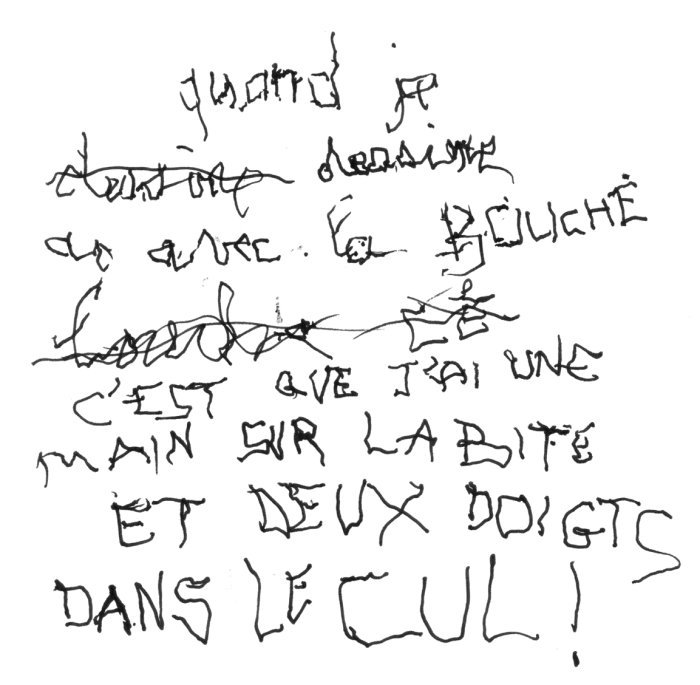 quand je
dessine
avec la BOUCHE
C'EST QUE J'AI UNE
MAIN SUR LA BITE
ET DEUX DOIGTS
DANS LE CUL !